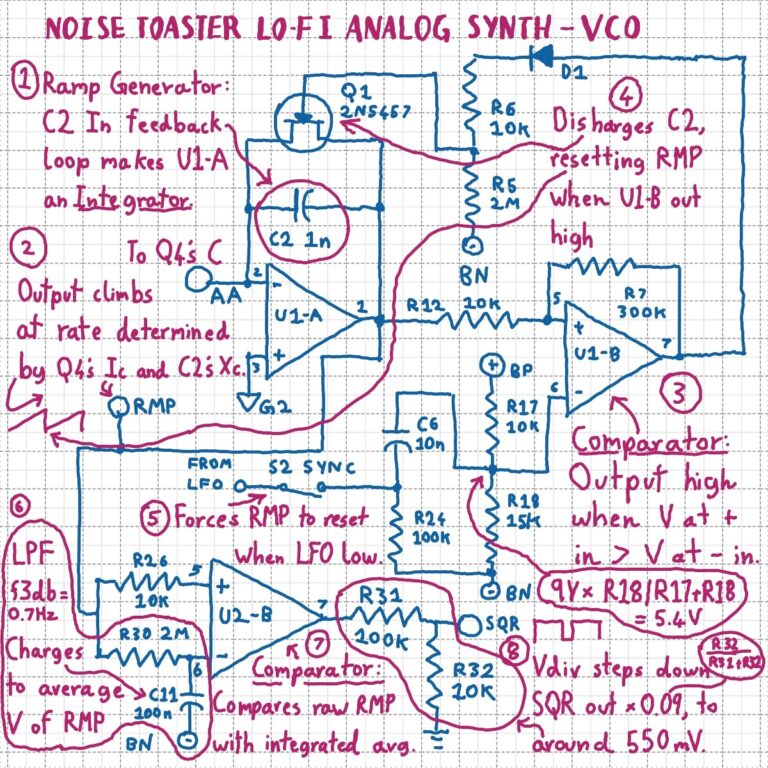 NOISE TOASTER LO-FI ANALOG SYNTH - VCO
1 Ramp Generator:
C2 In feedback
loop makes U1-A
an Integrator.
2
To Q4's C
Output climbs
at rate determined
by Q4's Ic and C2's Xc.
Q1
2N5457
C2 1n
AA
2
-
U1-A
1
+
3
G2
RMP
D1
R6
10K
R5
2M
BN
4
Disharges C2,
resetting RMP
when U1-B out
high
R12 10K
R7
300K
5
+
U1-B
7
6
-
+ BP
R17
10K
C6
10n
R18
15K
R24
100K
- BN
3
Comparator:
Output high
when V at +
in > V at - in.
9V × R18/R17+R18
= 5.4V
FROM
LFO
S2 SYNC
5 Forces RMP to reset
when LFO low.
6
LPF
f3db=
0.7Hz
Charges
to average
V of RMP
R26
10K
R30 2M
C11
100n
BN
5
+
U2-B
7
-
6
7
Comparator:
Compares raw RMP
with integrated avg.
R31
100K
SQR
R32
10K
8
Vdiv steps down
SQR out × 0.09, to
around 550 mV.
R32
R31+R32